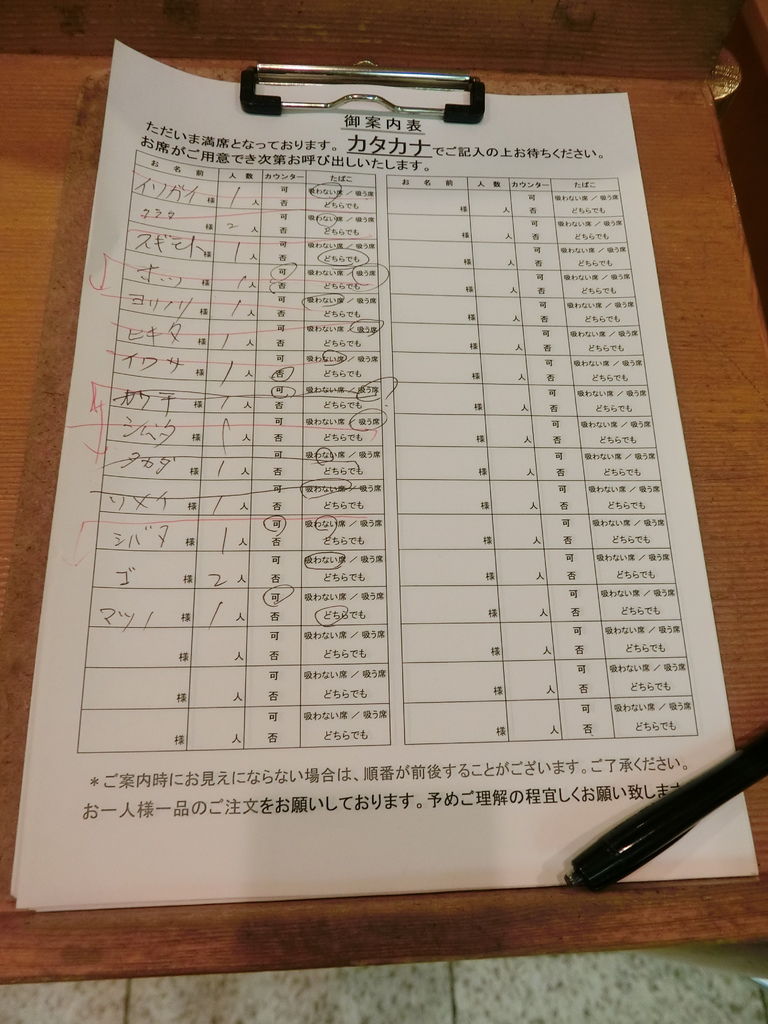 御案内表
ただいま満席となっております。カタカナでご記入の上お待ちください。
お席がご用意でき次第お呼び出しいたします。
お名前 人数 カウンター たばこ お名前 人数 カウンター たばこ
イソガイ 様 1 人 可 否 吸わない席 / 吸う席 どちらでも 様 人 可 否 吸わない席 / 吸う席 どちらでも
様 2 人 可 否 吸わない席 / 吸う席 どちらでも 様 人 可 否 吸わない席 / 吸う席 どちらでも
スギモト 様 1 人 可 否 吸わない席 / 吸う席 どちらでも 様 人 可 否 吸わない席 / 吸う席 どちらでも
様 1 人 可 否 吸わない席 / 吸う席 どちらでも 様 人 可 否 吸わない席 / 吸う席 どちらでも
ヨリノリ 様 1 人 可 否 吸わない席 / 吸う席 どちらでも 様 人 可 否 吸わない席 / 吸う席 どちらでも
ヒキタ 様 1 人 可 否 吸わない席 / 吸う席 どちらでも 様 人 可 否 吸わない席 / 吸う席 どちらでも
イワサ 様 1 人 可 否 吸わない席 / 吸う席 どちらでも 様 人 可 否 吸わない席 / 吸う席 どちらでも
カワチ 様 1 人 可 否 吸わない席 / 吸う席 どちらでも 様 人 可 否 吸わない席 / 吸う席 どちらでも
様 1 人 可 否 吸わない席 / 吸う席 どちらでも 様 人 可 否 吸わない席 / 吸う席 どちらでも
タカダ 様 1 人 可 否 吸わない席 / 吸う席 どちらでも 様 人 可 否 吸わない席 / 吸う席 どちらでも
ソメイ 様 1 人 可 否 吸わない席 / 吸う席 どちらでも 様 人 可 否 吸わない席 / 吸う席 どちらでも
シバタ 様 1 人 可 否 吸わない席 / 吸う席 どちらでも 様 人 可 否 吸わない席 / 吸う席 どちらでも
ゴ 様 2 人 可 否 吸わない席 / 吸う席 どちらでも 様 人 可 否 吸わない席 / 吸う席 どちらでも
マツノ 様 1 人 可 否 吸わない席 / 吸う席 どちらでも 様 人 可 否 吸わない席 / 吸う席 どちらでも
様 人 可 否 吸わない席 / 吸う席 どちらでも 様 人 可 否 吸わない席 / 吸う席 どちらでも
様 人 可 否 吸わない席 / 吸う席 どちらでも 様 人 可 否 吸わない席 / 吸う席 どちらでも
様 人 可 否 吸わない席 / 吸う席 どちらでも 様 人 可 否 吸わない席 / 吸う席 どちらでも
*ご案内時にお見えにならない場合は、順番が前後することがございます。ご了承ください。
お一人様一品のご注文をお願いしております。予めご理解の程宜しくお願い致しま